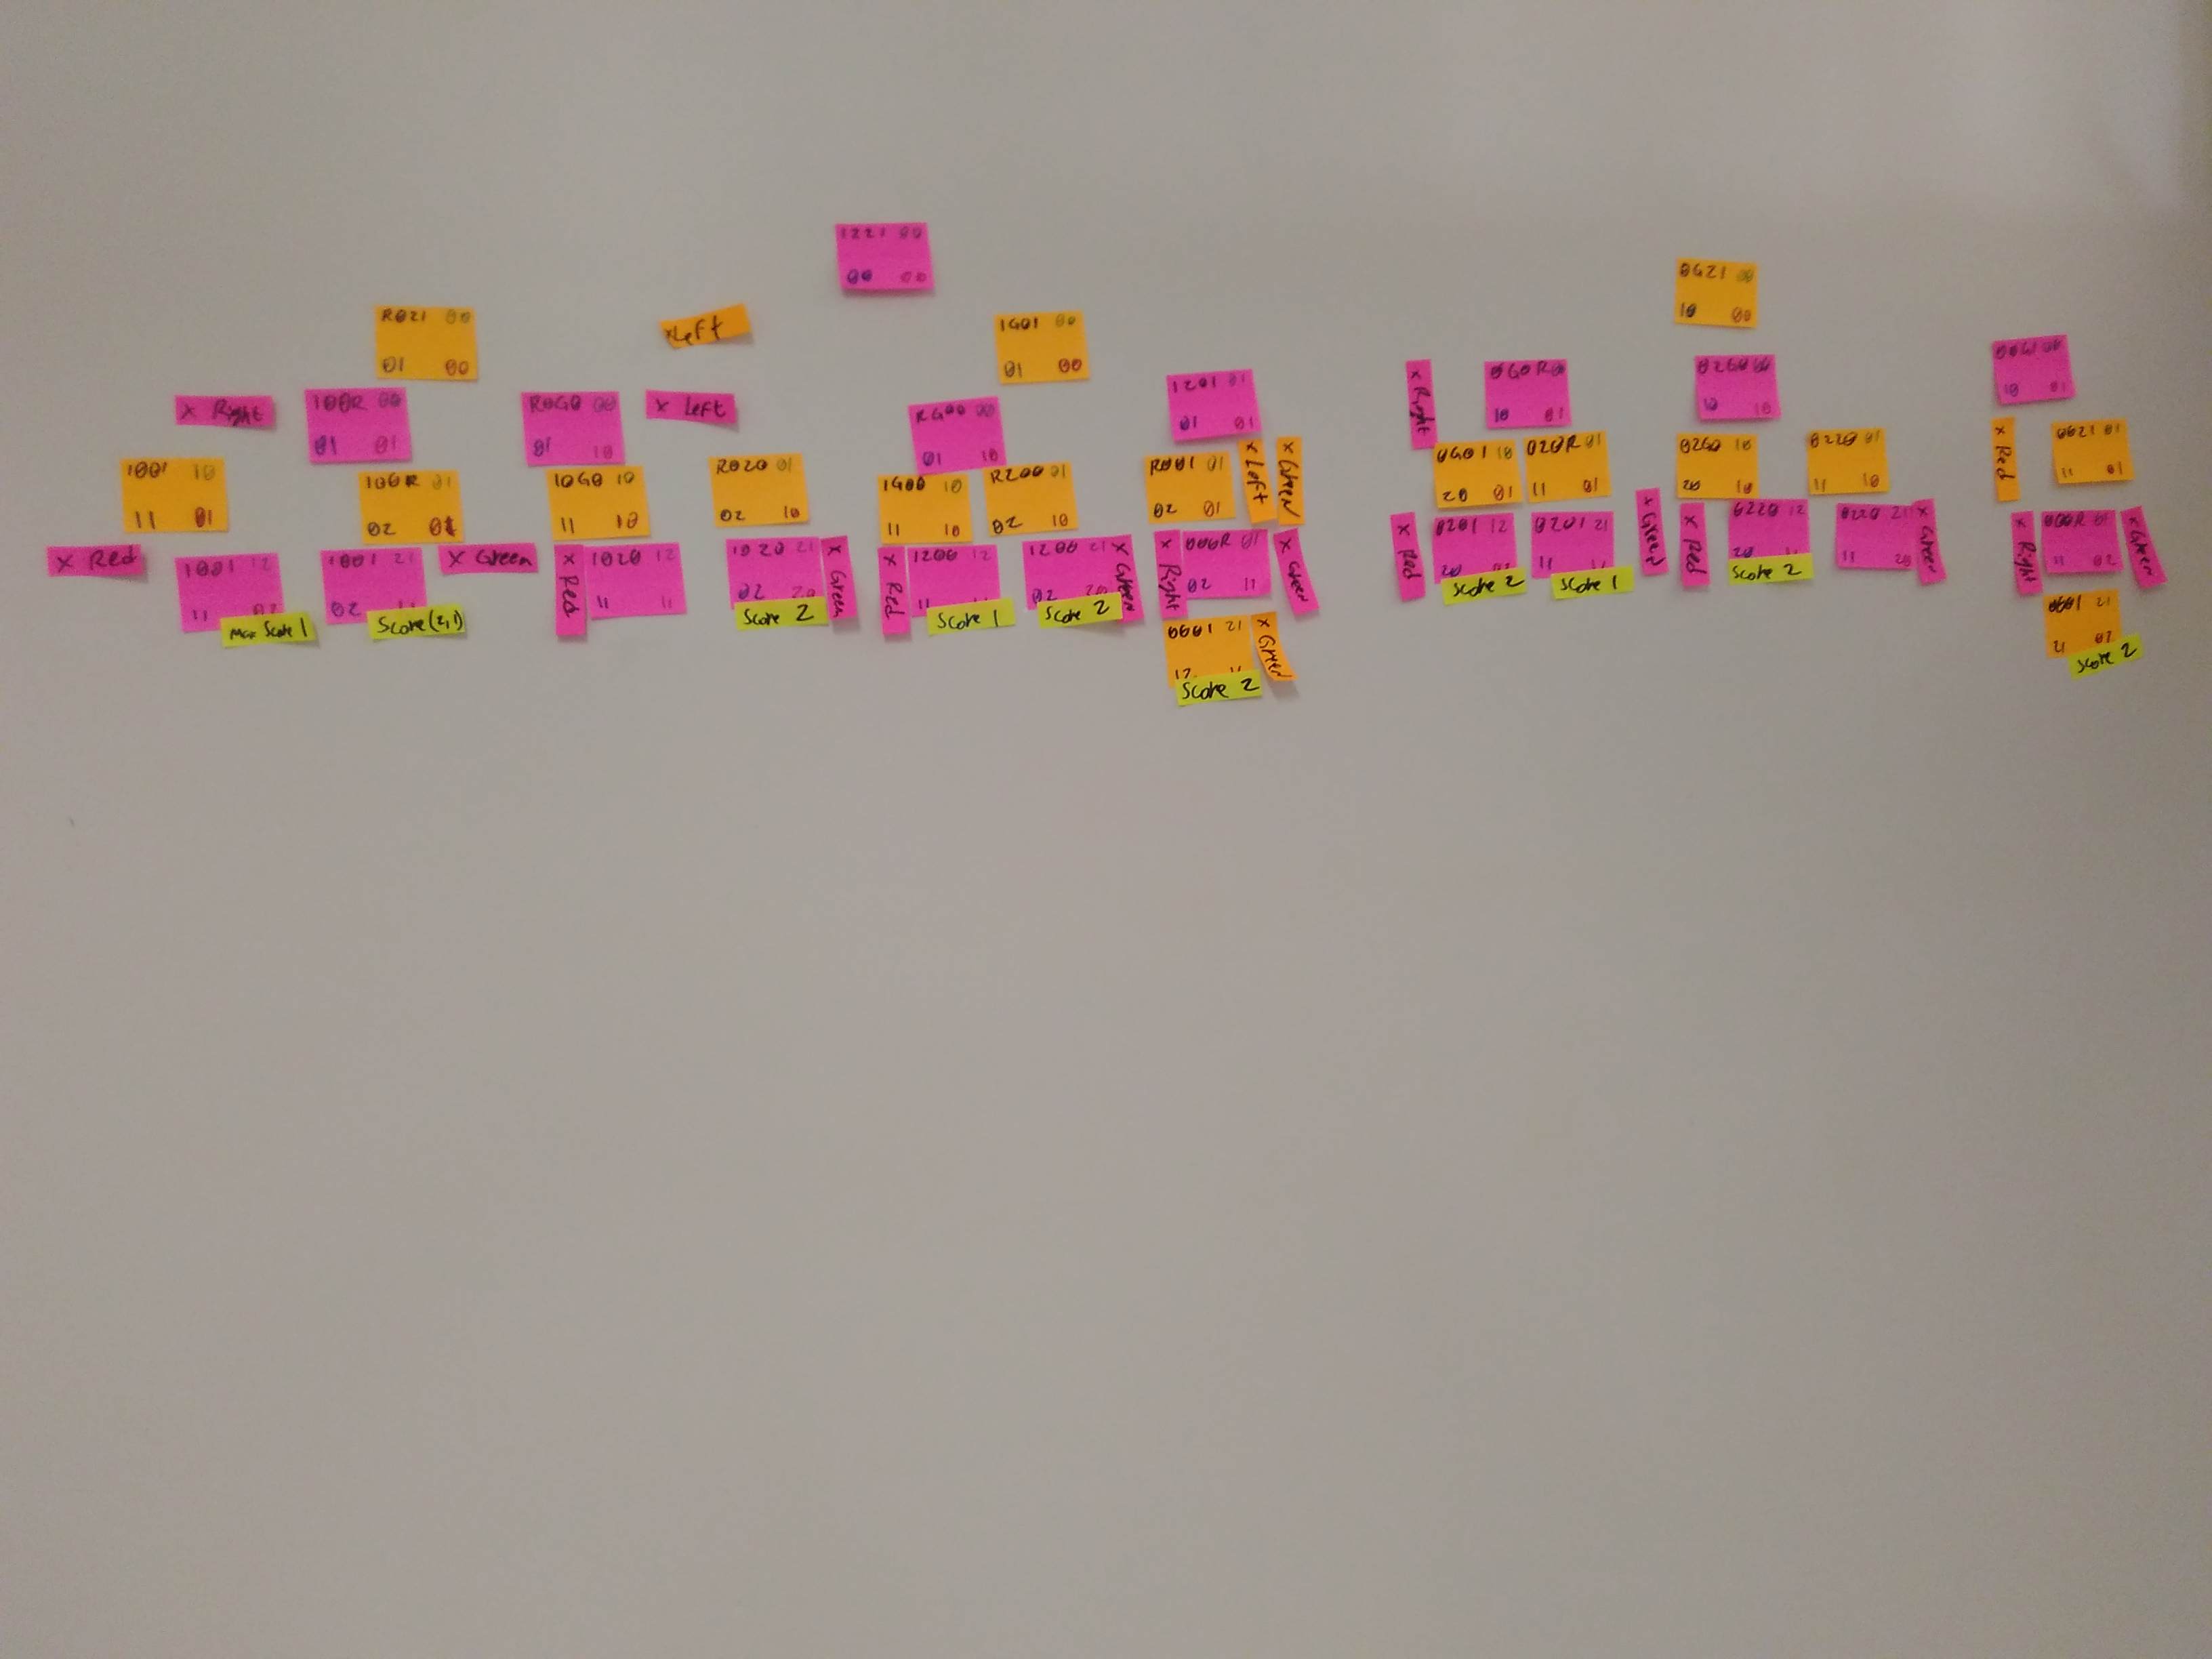 1221 00
00 00
0G21 00
10 00
R021 00
01 00
xLeft
1G01 00
01 00
x Right
100R 00
01 01
R0G0 00
01 10
x Left
RG00 00
01 10
1201 01
01 01
x Right
0G0R 00
10 01
0260 00
10 10
10 01
1001 10
11 01
100R 01
02
10G0 10
11 10
R020 01
02 10
1G00 10
11 10
R200 01
02 10
R001 01
02 01
x Left
x Green
0G01 10
20 01
020R 01
11 01
02G0 10
20 10
0220 01
11 10
x Red
0021 01
11 01
x Red
1001 12
11 02
Max Score 1
1001 21
02
Score (2,1)
x Green
x Red
1020 12
11 11
1020 21
02 20
Score 2
x Green
x Red
1200 12
11
Score 1
1200 21
02 20
Score 2
x Green
x Right
000R 01
02 11
x Green
0001 21
12
Score 2
x Green
x Red
0201 12
20
Score 2
0201 21
11
Score 1
x Green
x Red
0220 12
20
Score 2
0220 21
11 20
x Green
x Right
000R 01
11 02
x Green
0001 21
21 02
Score 2